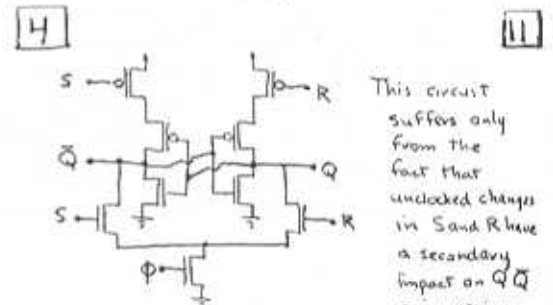 4
11
S
R
This circuit
suffers only
from the
fact that
unclocked changes
in S and R have
a secondary
impact on Q Q̄
Q̄
Q
S
R
Φ